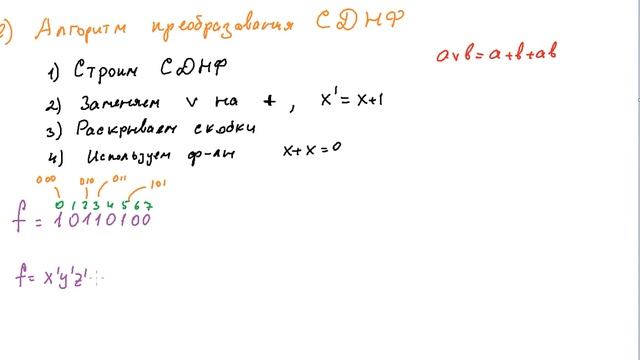 2) Алгоритм преобразования СДНФ
a∨b = a+b+ab
1) Строим СДНФ
2) Заменяем ∨ на +, x' = x+1
3) Раскрываем скобки
4) Используем ф-лы x+x=0
000 010 011 101
0 1 2 3 4 5 6 7
f = 10110100
f = x'y'z' +